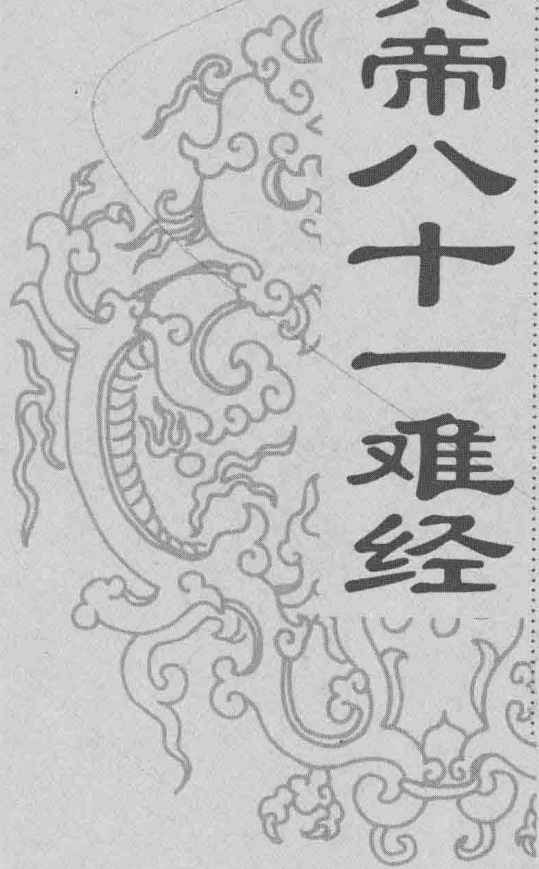 帝八十一难经